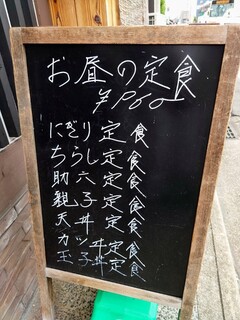 お昼の定食
にぎり定食
ちらし定食
助六定食
親子定食
天丼定食
カツ丼定食
玉子丼定食